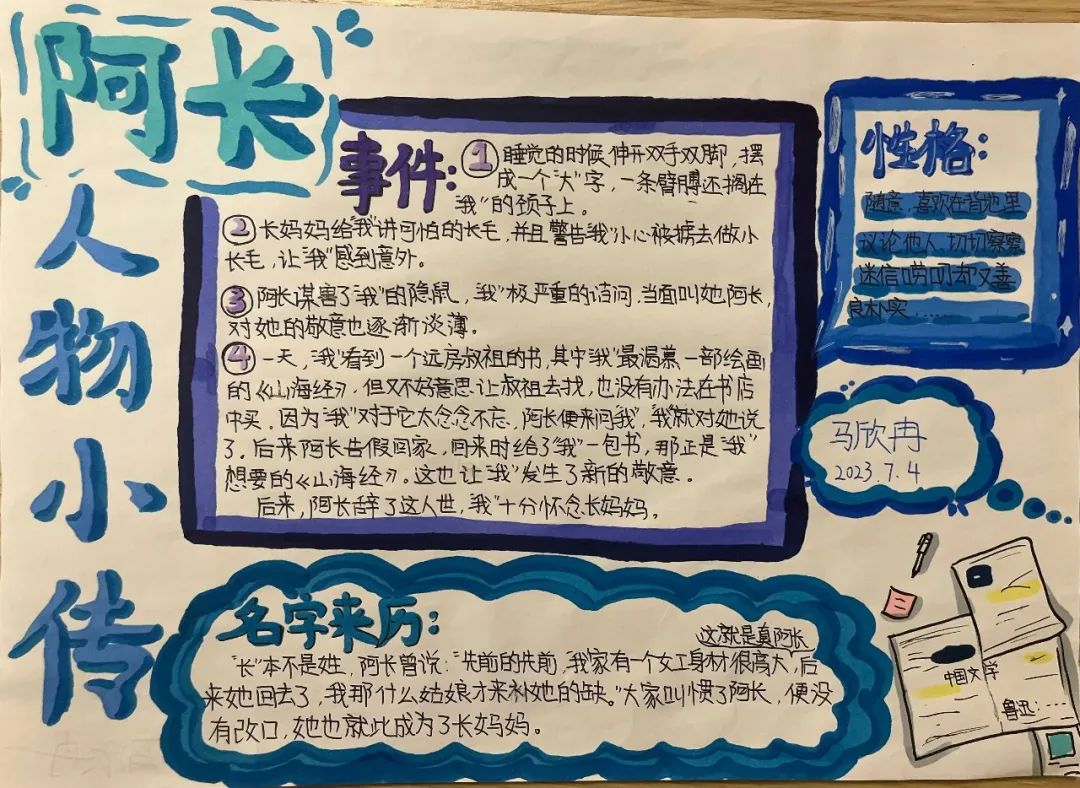 阿长
人物小传
事件:①睡觉的时候,伸开双手双脚,摆
成一个"大"字,一条臂膊还搁在
"我"的颈子上。
②长妈妈给"我"讲可怕的长毛,并且警告"我"小心被掳去做小
长毛,让"我"感到意外。
③阿长谋害了"我"的隐鼠,"我"极严重的诘问,当面叫她阿长,
对她的敬意也逐渐淡薄。
④一天,"我"看到一个远房叔祖的书,其中"我"最渴慕一部绘画
的《山海经》,但又不好意思让叔祖去找,也没有办法在书店
中买。因为"我"对于它太念念不忘,阿长便来问"我","我"就对她说
了。后来阿长告假回家,回来时给了"我"一包书,那正是"我"
想要的《山海经》。这也让"我"发生了新的敬意。
后来,阿长辞了这人世,"我"十分怀念长妈妈。
性格:
随意,喜欢在背地里
议论他人、切切察察
迷信唠叨却又善
良朴实……
马欣冉
2023.7.4
名字来历:
这就是真阿长
"长"本不是姓,阿长曾说:"先前的先前,我家有一个女工,身材很高大,后
来她回去了,我那什么姑娘才来补她的缺。"大家叫惯了阿长,便没
有改口,她也就此成为了长妈妈。
中国文学
鲁迅:…